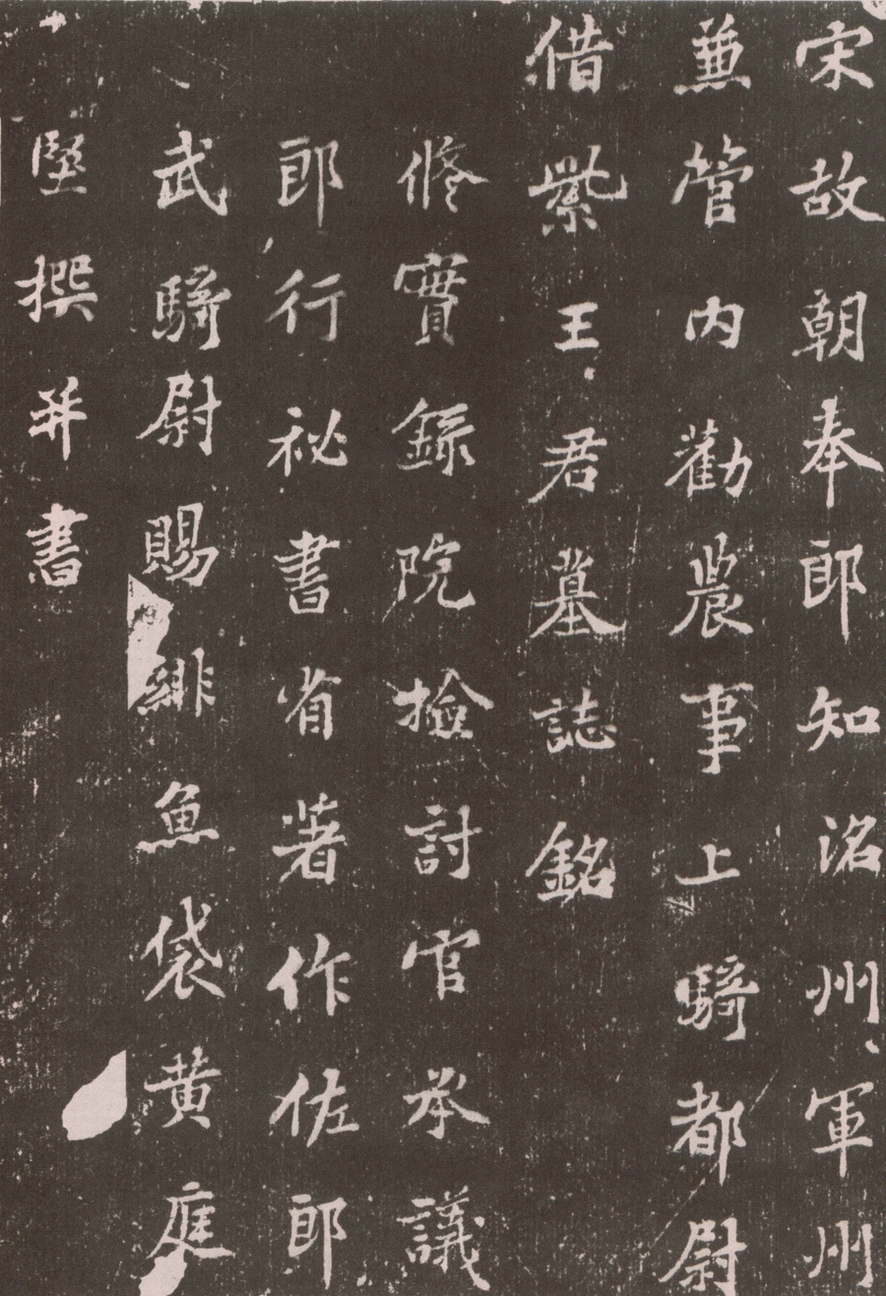 宋故朝奉郎知洺州軍州
兼管内勸農事上騎都尉
借紫王君墓誌銘
修實錄院撿討官承議
郎行祕書省著作佐郎
武騎尉賜緋魚袋黃庭
堅撰并書